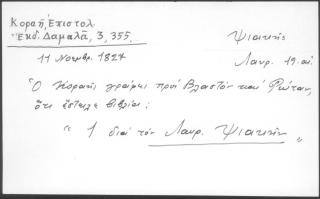 Κοραῆ, Ἐπιστολ.
Ἔκδ. Δαμαλᾶ, 3, 355.
Ψιακῆς
Λαυρ. 19. αἰ.
11 Νοεμβρ. 1827
Ὁ Κοραῆς γράφει πρὸς Βλαστὸν καὶ Ρώταν,
ὅτι ἔστειλε βιβλία:
"1 διὰ τὸν Λαυρ. Ψιακῆν"